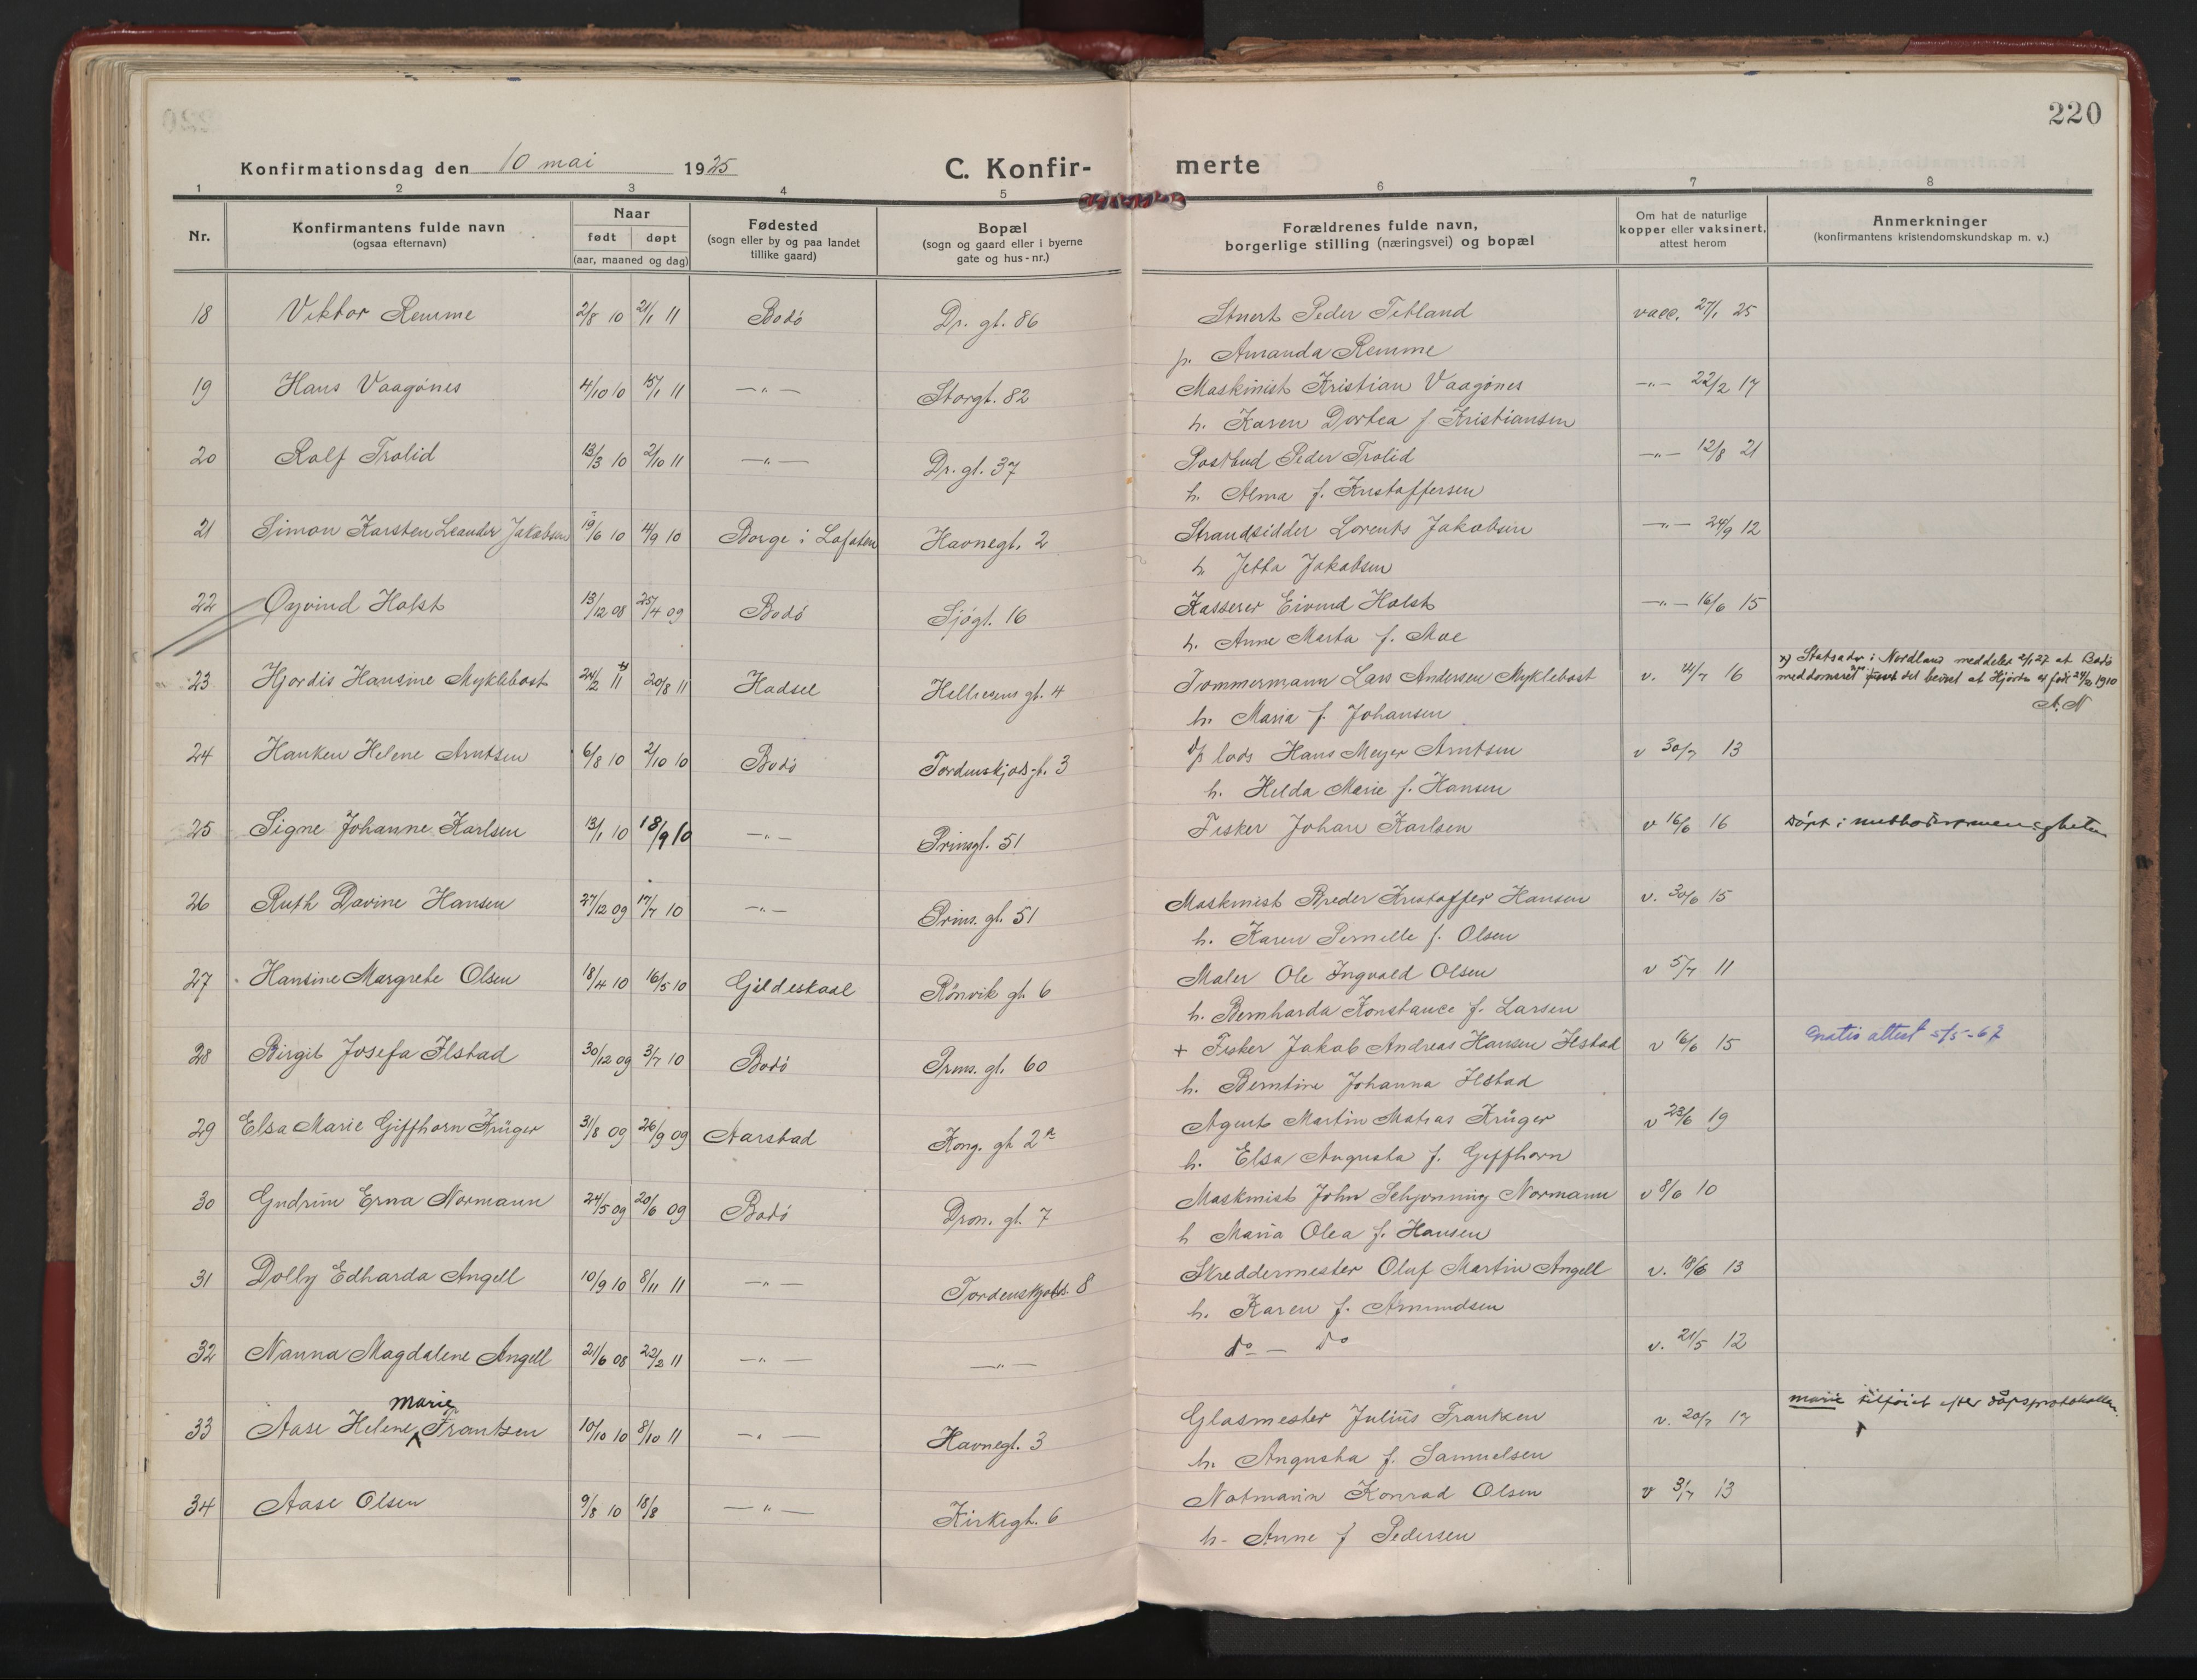 220
Konfirmationsdag den 10 mai 1925
C. Konfir- merte
1 2 3 4 5 6 7 8
Nr.
Konfirmantens fulde navn
(ogsaa efternavn)
Naar
født døpt
(aar, maaned og dag)
Fødested
(sogn eller by og paa landet
tillike gaard)
Bopæl
(sogn og gaard eller i byerne
gate og hus-nr.)
Forældrenes fulde navn,
borgerlige stilling (næringsvei) og bopæl
Om hat de naturlige
kopper eller vaksinert,
attest herom
Anmerkninger
(konfirmantens kristendomskundskap m. v.)
18 Viktor Remme 2/8 10 21/1 11 Bodö Dr. gt. 86 Stuert Peder Tetland vacc. 27/1 25
p. Amanda Remme
19 Hans Vaagönes 4/10 10 15/1 11 —"— Storgt. 82 Maskinist Kristian Vaagönes —"— 22/2 17
h. Karen Dortea f Kristiansen
20 Rolf Trolid 13/3 10 2/10 11 —"— Dr. gt. 37 Postbud Peder Trolid —"— 12/8 21
h. Alma f. Kristoffersen
21 Simon Karsten Leander Jakobsen 19/6 10 4/9 10 Borge i Lofoten Havnegt. 2 Strandsidder Lorents Jakobsen —"— 24/9 12
h. Jetta Jakobsen
22 Øyvind Holst 13/12 08 25/4 09 Bodö Sjøgt. 16 Kasserer Eivind Holst —"— 16/6 15
h. Anne Marta f. Moe
23 Hjordis Hansine Myklebost 24/2 11 x) 20/8 11 Hadsel Hellesens gt. 4 Tømmermann Lars Andersen Myklebost v. 4/7 16 x) Statsadv i Nordland meddeler 2/1 27 at Bodö
meddomsret det bevist at Hjördis er född 24/2 1910
A. N
h. Maria f. Johansen
24 Hanken Helene Arntsen 6/8 10 2/10 10 Bodö Tordenskjolds gt. 3 d/s lods Hans Meyer Arntsen v 30/7 13
h. Helda Marie f. Hansen
25 Signe Johanne Karlsen 13/1 10 18/9 10 —"— Prinsgt. 51 Fisker Johan Karlsen v 16/6 16 Döpt i methodistmenigheten
26 Ruth Davine Hansen 27/12 09 17/7 10 —"— Prins. gt. 51 Maskinist Breder Kristoffer Hansen v. 30/6 15
h. Karen Pernille f. Olsen
27 Hansine Margrete Olsen 18/4 10 16/5 10 Gildeskaal Rönvik gt. 6 Maler Ole Ingvald Olsen v 5/7 11
h. Bernharda Konstance f. Larsen
28 Birgit Josefa Ilstad 30/12 09 3/7 10 Bodö Prins. gt. 60 + Fisker Jakob Andreas Hansen Ilstad v 16/6 15 Gratis attest 5/5-67
h. Berntine Johanna Ilstad
29 Elsa Marie Giffhorn Krüger 31/8 09 26/9 09 Aarstad Kong. gt 2 a Agent Martin Matias Krüger v 23/6 19
h. Elsa Augusta f. Giffhorn
30 Gudrun Erna Normann 24/5 09 20/6 09 Bodö Dron. gt. 7 Maskinist John Schjønning Normann v 8/6 10
h Maria Olea f. Hansen
31 Dolly Edharda Angell 10/9 10 8/11 11 —"— Tordenskjolds. 8 Skreddermester Oluf Martin Angell v. 18/6 13
h. Karen f. Amundsen
32 Nanna Magdalene Angell 21/6 08 22/2 11 —"— —"— do — do v. 21/5 12
marie
33 Aase Helene Frantzen 10/10 10 8/10 11 —"— Havnegt. 3 Glasmester Julius Frantzen v. 20/7 17 marie tilföiet efter dåpsprotokollen.
h. Augusta f. Samuelsen
34 Aase Olsen 9/8 10 18/8 —"— Kirkegt. 6 Notmann Konrad Olsen v 3/7 13
h. Anne f Pedersen